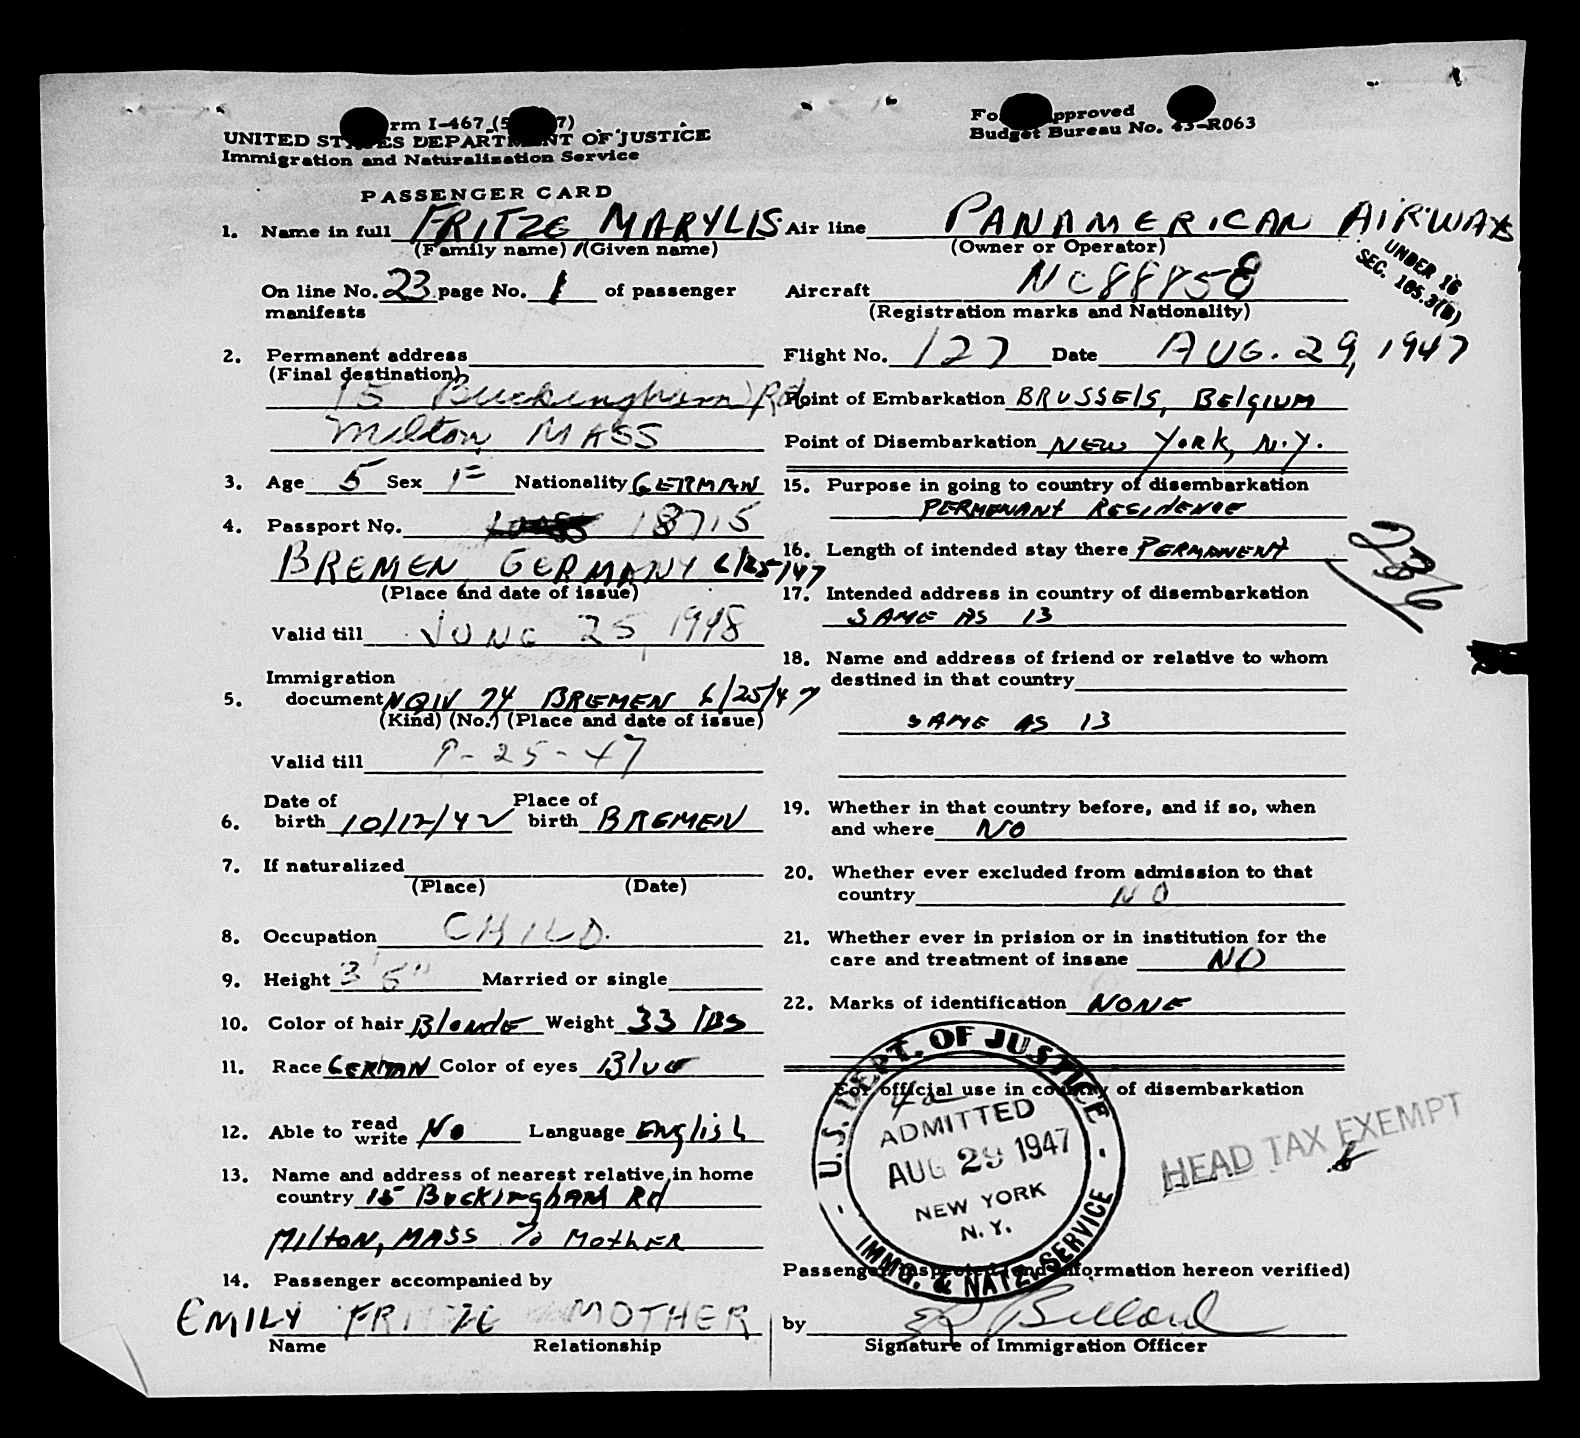 Form I-467 (5 7)
UNITED STATES DEPARTMENT OF JUSTICE
Immigration and Naturalization Service
Form Approved
Budget Bureau No. 43-R063
PASSENGER CARD
1. Name in full FRITZE MARYLIS
(Family name) (Given name)
On line No. 23 page No. 1 of passenger
manifests
2. Permanent address
(Final destination)
15 Buckingham Rd
Milton, MASS
3. Age 5 Sex F Nationality GERMAN
4. Passport No. 18715
BREMEN, GERMANY 6/25/47
(Place and date of issue)
Valid till JUNE 25, 1948
Immigration
5. document NQIV 74 BREMEN 6/25/47
(Kind) (No.) (Place and date of issue)
Valid till 9-25-47
Date of Place of
6. birth 10/12/42 birth BREMEN
7. If naturalized
(Place) (Date)
8. Occupation CHILD.
9. Height 3'5" Married or single
10. Color of hair BlondE Weight 33 lbs
11. Race GERMAN Color of eyes Blue
12. Able to read write No Language English
13. Name and address of nearest relative in home
country 15 Buckingham Rd
Milton, MASS To MothER
14. Passenger accompanied by
EMILY FRITZE MOTHER
Name Relationship
Air line PANAMERICAN AIRWAYS
(Owner or Operator)
UNDER 16
SEC. 105.3(B)
Aircraft NC88858
(Registration marks and Nationality)
Flight No. 127 Date AUG. 29, 1947
Point of Embarkation BRUSSElS, BElgIUM
Point of Disembarkation NEW YoRk, N.Y.
15. Purpose in going to country of disembarkation
PERMENANT RESIDENCE
16. Length of intended stay there PERMANENT
17. Intended address in country of disembarkation
SAME AS 13
18. Name and address of friend or relative to whom
destined in that country
SAME AS 13
19. Whether in that country before, and if so, when
and where NO
20. Whether ever excluded from admission to that
country NO
21. Whether ever in prision or in institution for the
care and treatment of insane NO
22. Marks of identification NONE
For official use in country of disembarkation
U.S. DEPT. OF JUSTICE
ADMITTED
AUG 29 1947
NEW YORK
N.Y.
IMMG. & NATZ. SERVICE
HEAD TAX EXEMPT
Passenger inspected (and information hereon verified)
by
Signature of Immigration Officer